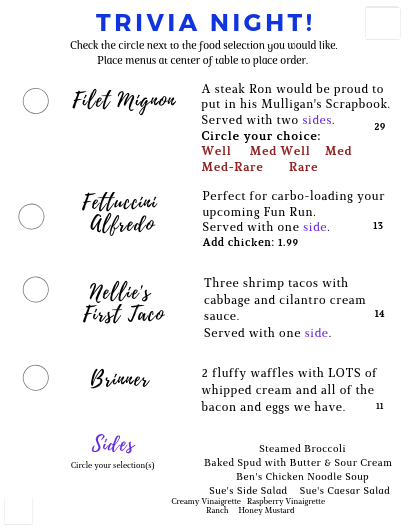 TRIVIA NIGHT!
Check the circle next to the food selection you would like.
Place menus at center of table to place order.
Filet Mignon
A steak Ron would be proud to
put in his Mulligan's Scrapbook.
Served with two sides.
29
Circle your choice:
Well Med Well Med
Med-Rare Rare
Fettuccini
Alfredo
Perfect for carbo-loading your
upcoming Fun Run.
Served with one side.
13
Add chicken: 1.99
Nellie's
First Taco
Three shrimp tacos with
cabbage and cilantro cream
sauce.
14
Served with one side.
Brinner
2 fluffy waffles with LOTS of
whipped cream and all of the
bacon and eggs we have.
11
Sides
Circle your selection(s)
Steamed Broccoli
Baked Spud with Butter & Sour Cream
Ben's Chicken Noodle Soup
Sue's Side Salad Sue's Caesar Salad
Creamy Vinaigrette Raspberry Vinaigrette
Ranch Honey Mustard